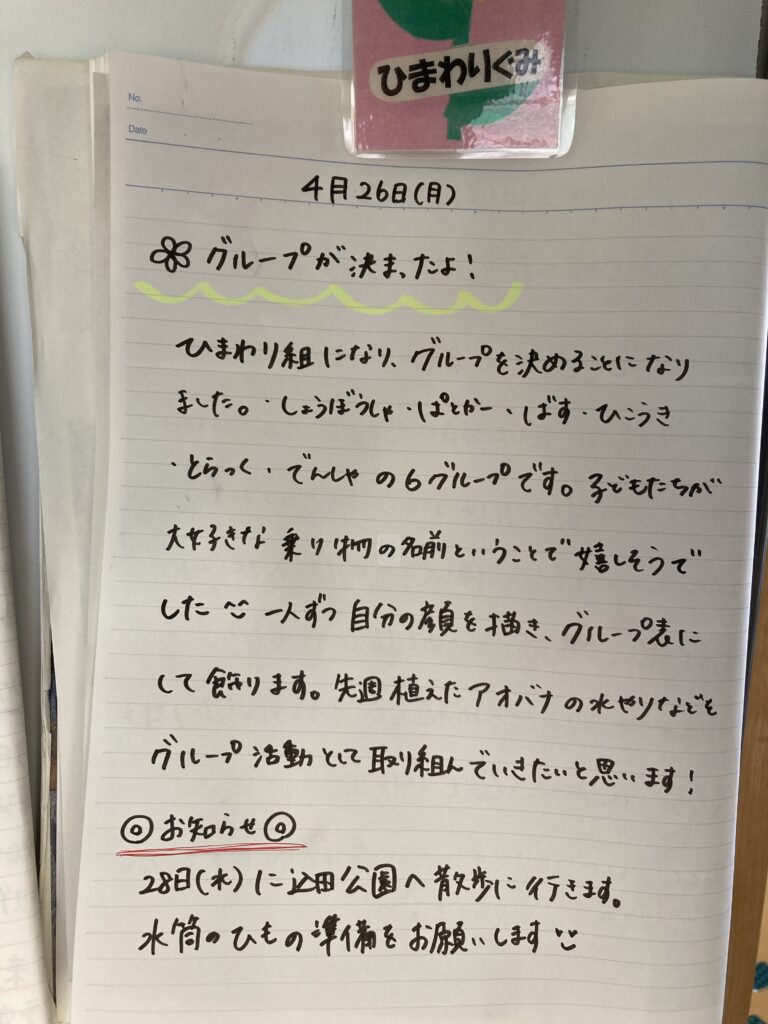 ひまわりぐみ
No.
Date
4月26日(月)
グループが決まったよ！
ひまわり組になり、グループを決めることになり
ました。・しょうぼうしゃ・ぱとかー・ばす・ひこうき
・とらっく・でんしゃの6グループです。子どもたちが
大好きな乗り物の名前ということで嬉しそうで
した 一人ずつ自分の顔を描き、グループ表に
して飾ります。先週植えたアオバナの水やりなどを
グループ活動として取り組んでいきたいと思います！
◎お知らせ◎
28日(水)に込田公園へ散歩に行きます。
水筒のひもの準備をお願いします